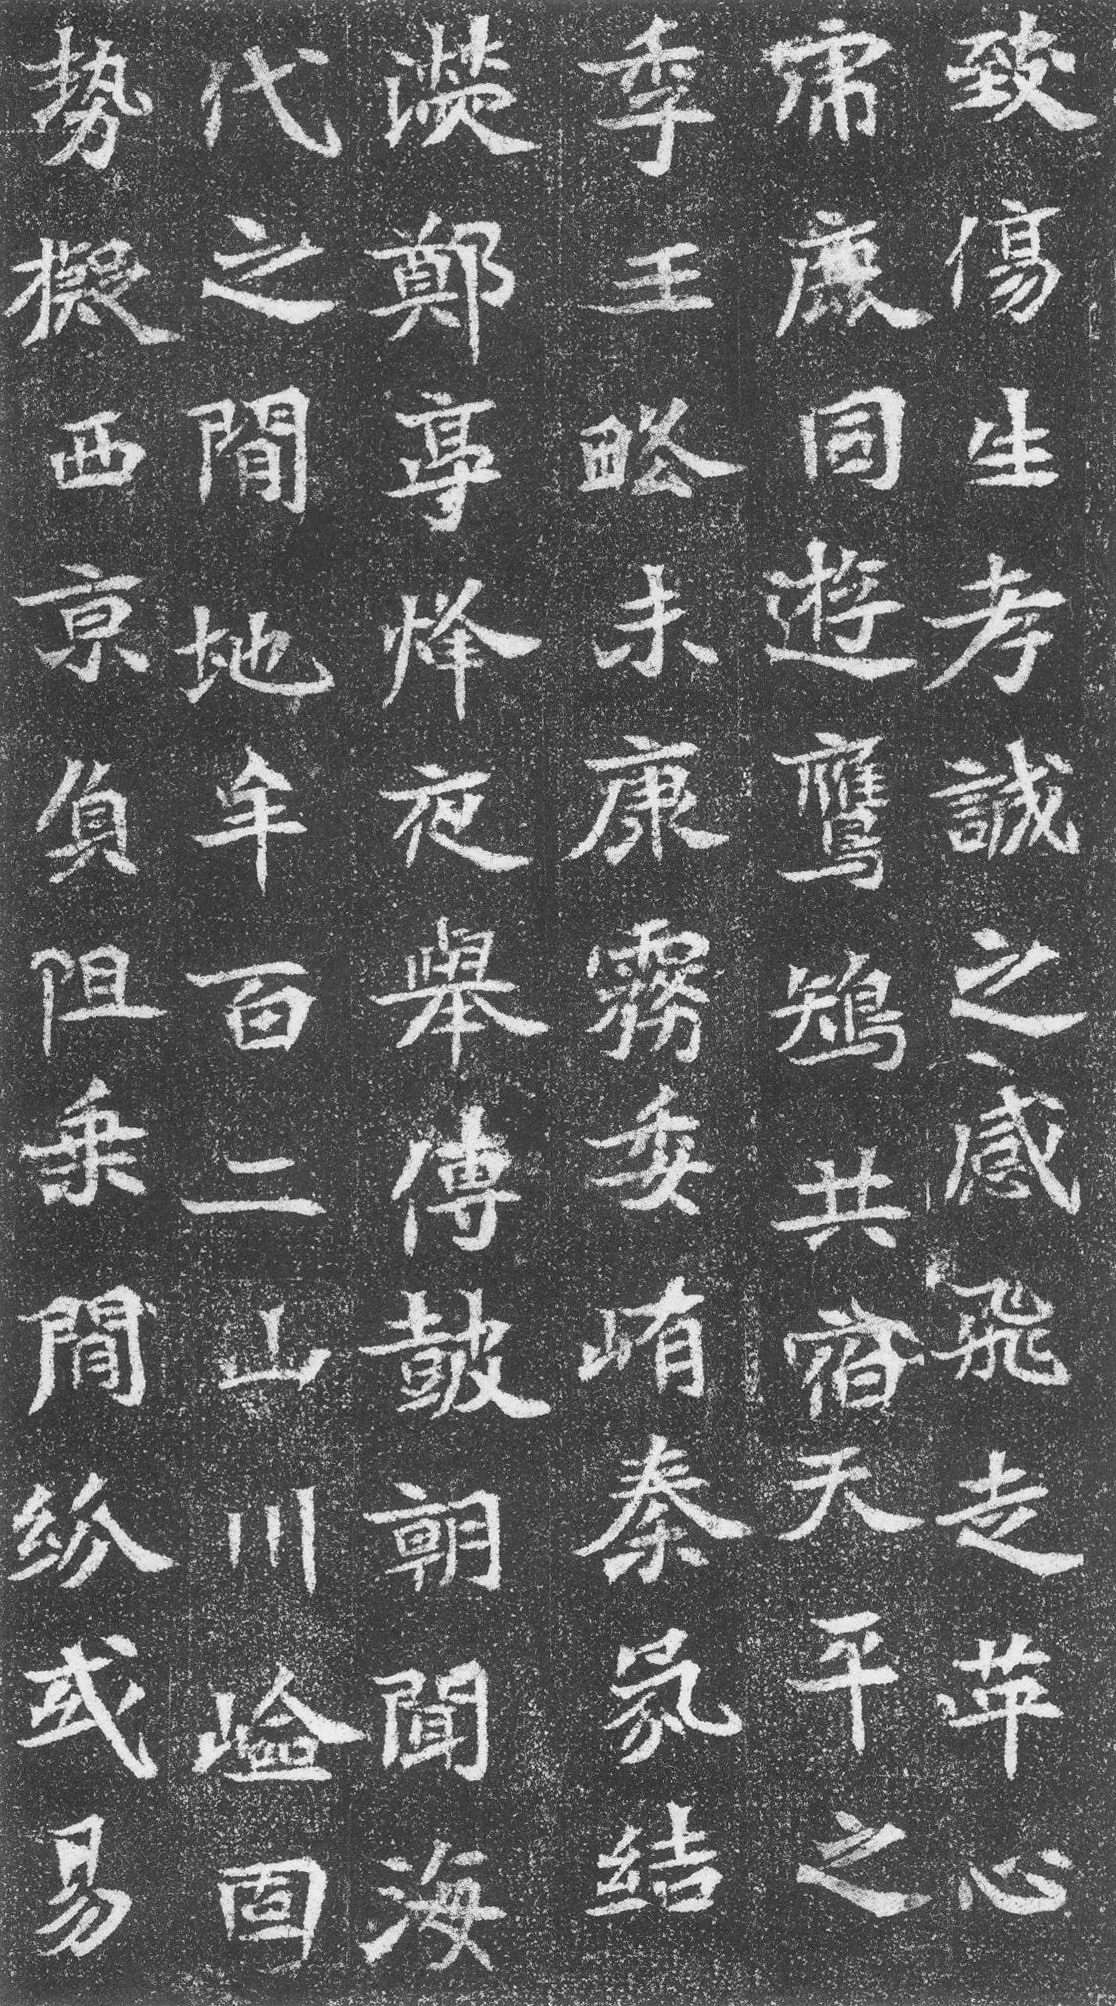 致傷生孝誠之感飛走革心
同遊鷹鴙共宿天平之
季王略未康霧委崤秦氛結
滎鄭亭烽夜舉傳鼓朝聞海
代之閒地牟百二山川嶮固
勢擬西京負阻乘閒紛或易